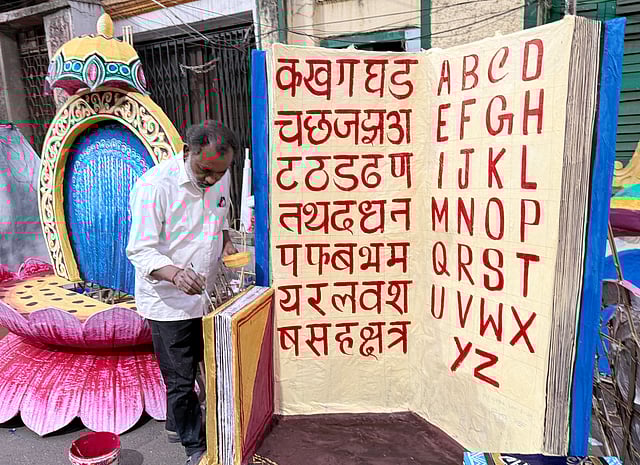 कखगघड
चछजझञ
टठडढण
तथदधन
पफबभम
यरलवश
षसहक्षत्र
ABCD
EFGH
IJKL
MNOP
QRST
UVWX
YZ